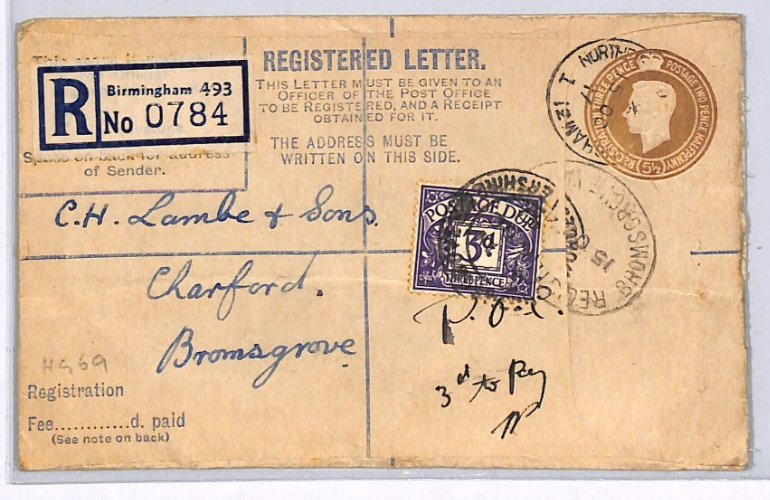 REGISTERED LETTER.
THIS LETTER MUST BE GIVEN TO AN
OFFICER OF THE POST OFFICE
TO BE REGISTERED, AND A RECEIPT
OBTAINED FOR IT.
THE ADDRESS MUST BE
WRITTEN ON THIS SIDE.
R
Birmingham 493
No 0784
of Sender.
POSTAGE TWO PENCE HALFPENNY
REGISTRATION THREE PENCE
(5½)
C.H. Lambe & Sons.
POSTAGE DUE
3d
THREE PENCE
BROMSGROVE
15
Charford.
Bromsgrove
3d to Pay
HG69
Registration
Fee............d. paid
(See note on back)